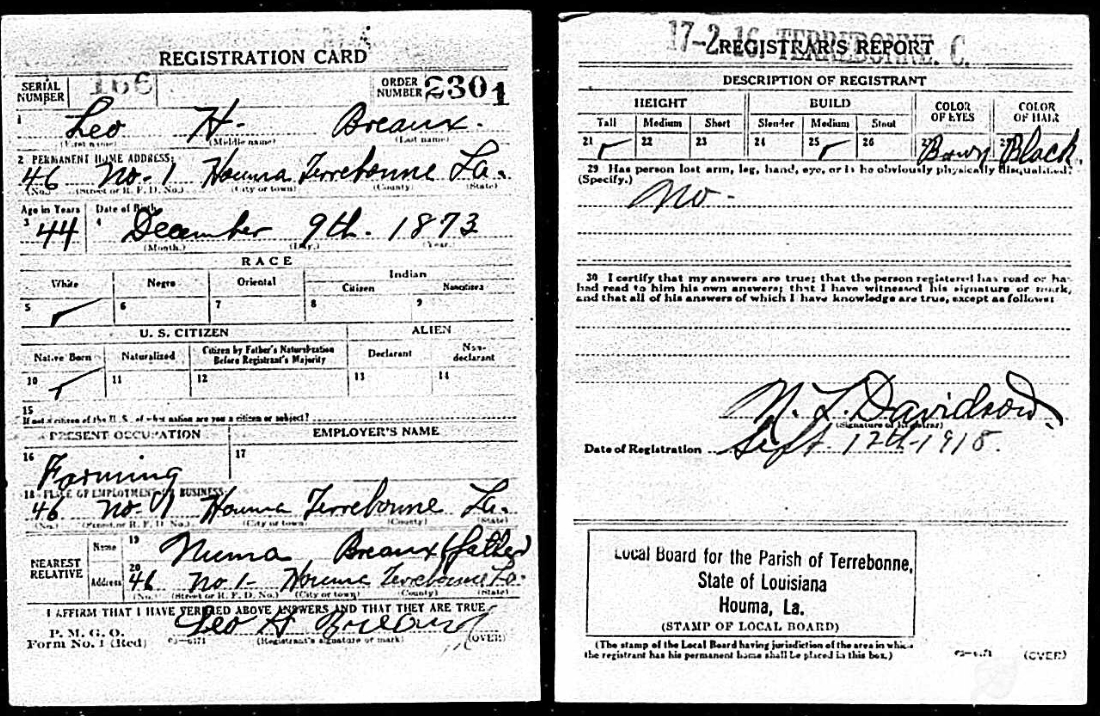 REGISTRATION CARD
SERIAL NUMBER 166
ORDER NUMBER 2301
1 Leo H. Breaux.
(First name) (Middle name) (Last name)
2 PERMANENT HOME ADDRESS:
46 No. 1 Houma Terrebonne La.
(No.) (Street or R. F. D. No.) (City or town) (County) (State)
Age in Years Date of Birth
3 44 4 December 9th. 1873
(Month.) (Day.) (Year.)
RACE
White Negro Oriental Indian
Citizen Noncitizen
5 6 7 8 9
U. S. CITIZEN ALIEN
Native Born Naturalized Citizen by Father's Naturalization Before Registrant's Majority Declarant Non-declarant
10 11 12 13 14
15
If not a citizen of the U. S. of what nation are you a citizen or subject?
PRESENT OCCUPATION EMPLOYER'S NAME
16 Farming 17
18 PLACE OF EMPLOYMENT OR BUSINESS:
46 No. 1 Houma Terrebonne La.
(No.) (Street or R. F. D. No.) (City or town) (County) (State)
NEAREST RELATIVE
Name 19 Numa Breaux (father
Address 20 46 No 1- Houma Terrebonne La.
(No.) (Street or R. F. D. No.) (City or town) (County) (State)
I AFFIRM THAT I HAVE VERIFIED ABOVE ANSWERS AND THAT THEY ARE TRUE
P. M. G. O.
Form No. 1 (Red) 03-6171 Leo H Breaux
(Registrant's signature or mark) (OVER)
17-2-16 TERREBONNE. C.
REGISTRAR'S REPORT
DESCRIPTION OF REGISTRANT
HEIGHT BUILD COLOR OF EYES COLOR OF HAIR
Tall Medium Short Slender Medium Stout
21 22 23 24 25 26 27 Bown Black.
29 Has person lost arm, leg, hand, eye, or is he obviously physically disqualified?
(Specify.) No -
30 I certify that my answers are true; that the person registered has read or has
had read to him his own answers; that I have witnessed his signature or mark,
and that all of his answers of which I have knowledge are true, except as follows:
N. L. Davidson
(Signature of Registrar)
Date of Registration Sept 12th-1918.
Local Board for the Parish of Terrebonne,
State of Louisiana
Houma, La.
(STAMP OF LOCAL BOARD)
(The stamp of the Local Board having jurisdiction of the area in which
the registrant has his permanent home shall be placed in this box.)
03-6171 (OVER)